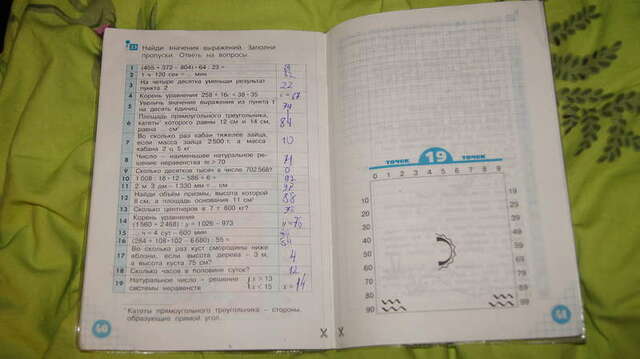 23 Найди значения выражений. Заполни
пропуски. Ответь на вопросы.
1 (405 + 372 – 804) · 64 : 23 =
2 1 ч 120 сек = ... мин 62
3 На четыре десятка уменьши результат
пункта 2 22
4 Корень уравнения 258 + 16 = 38 · 35
5 Увеличь значение выражения из пункта 1
на десять единиц 74
6 Площадь прямоугольного треугольника,
катеты* которого равны 12 см и 14 см,
равна ... см² 84
7 Во сколько раз кабан тяжелее зайца,
если масса зайца 2500 г, а масса
кабана 2 ц 5 кг 10
8 Число – наименьшее натуральное ре-
шение неравенства m > 70 71
9 Сколько десятков тысяч в числе 702568? 0
10 1008 : 18 · 12 – 586 + 6 = 92
11 2 м 3 дм – 1330 мм = ... см 97
12 Найти объём призмы, высота которой
8 см, а площадь основания 11 см² 88
13 Сколько центнеров в 7 т 600 кг?
14 Корень уравнения
(1560 + 2468) : y = 1026 – 973 y = 76
15 ... ч = 4 сут – 600 мин
16 (284 + 108 · 102 – 6680) : 55 =
17 Во сколько раз куст смородины ниже
яблони, если высота дерева – 3 м,
а высота куста 75 см? 4
18 Сколько часов в половине суток? 12
19 Натуральное число – решение x > 13
системы неравенств x < 15 x = 14
* Катеты прямоугольного треугольника – стороны,
образующие прямой угол.
40
точек 19 точек
0 1 2 3 4 5 6 7 8 9
10 19
20 29
30 39
40 49
50 59
60 69
70 79
80 89
90 99
41